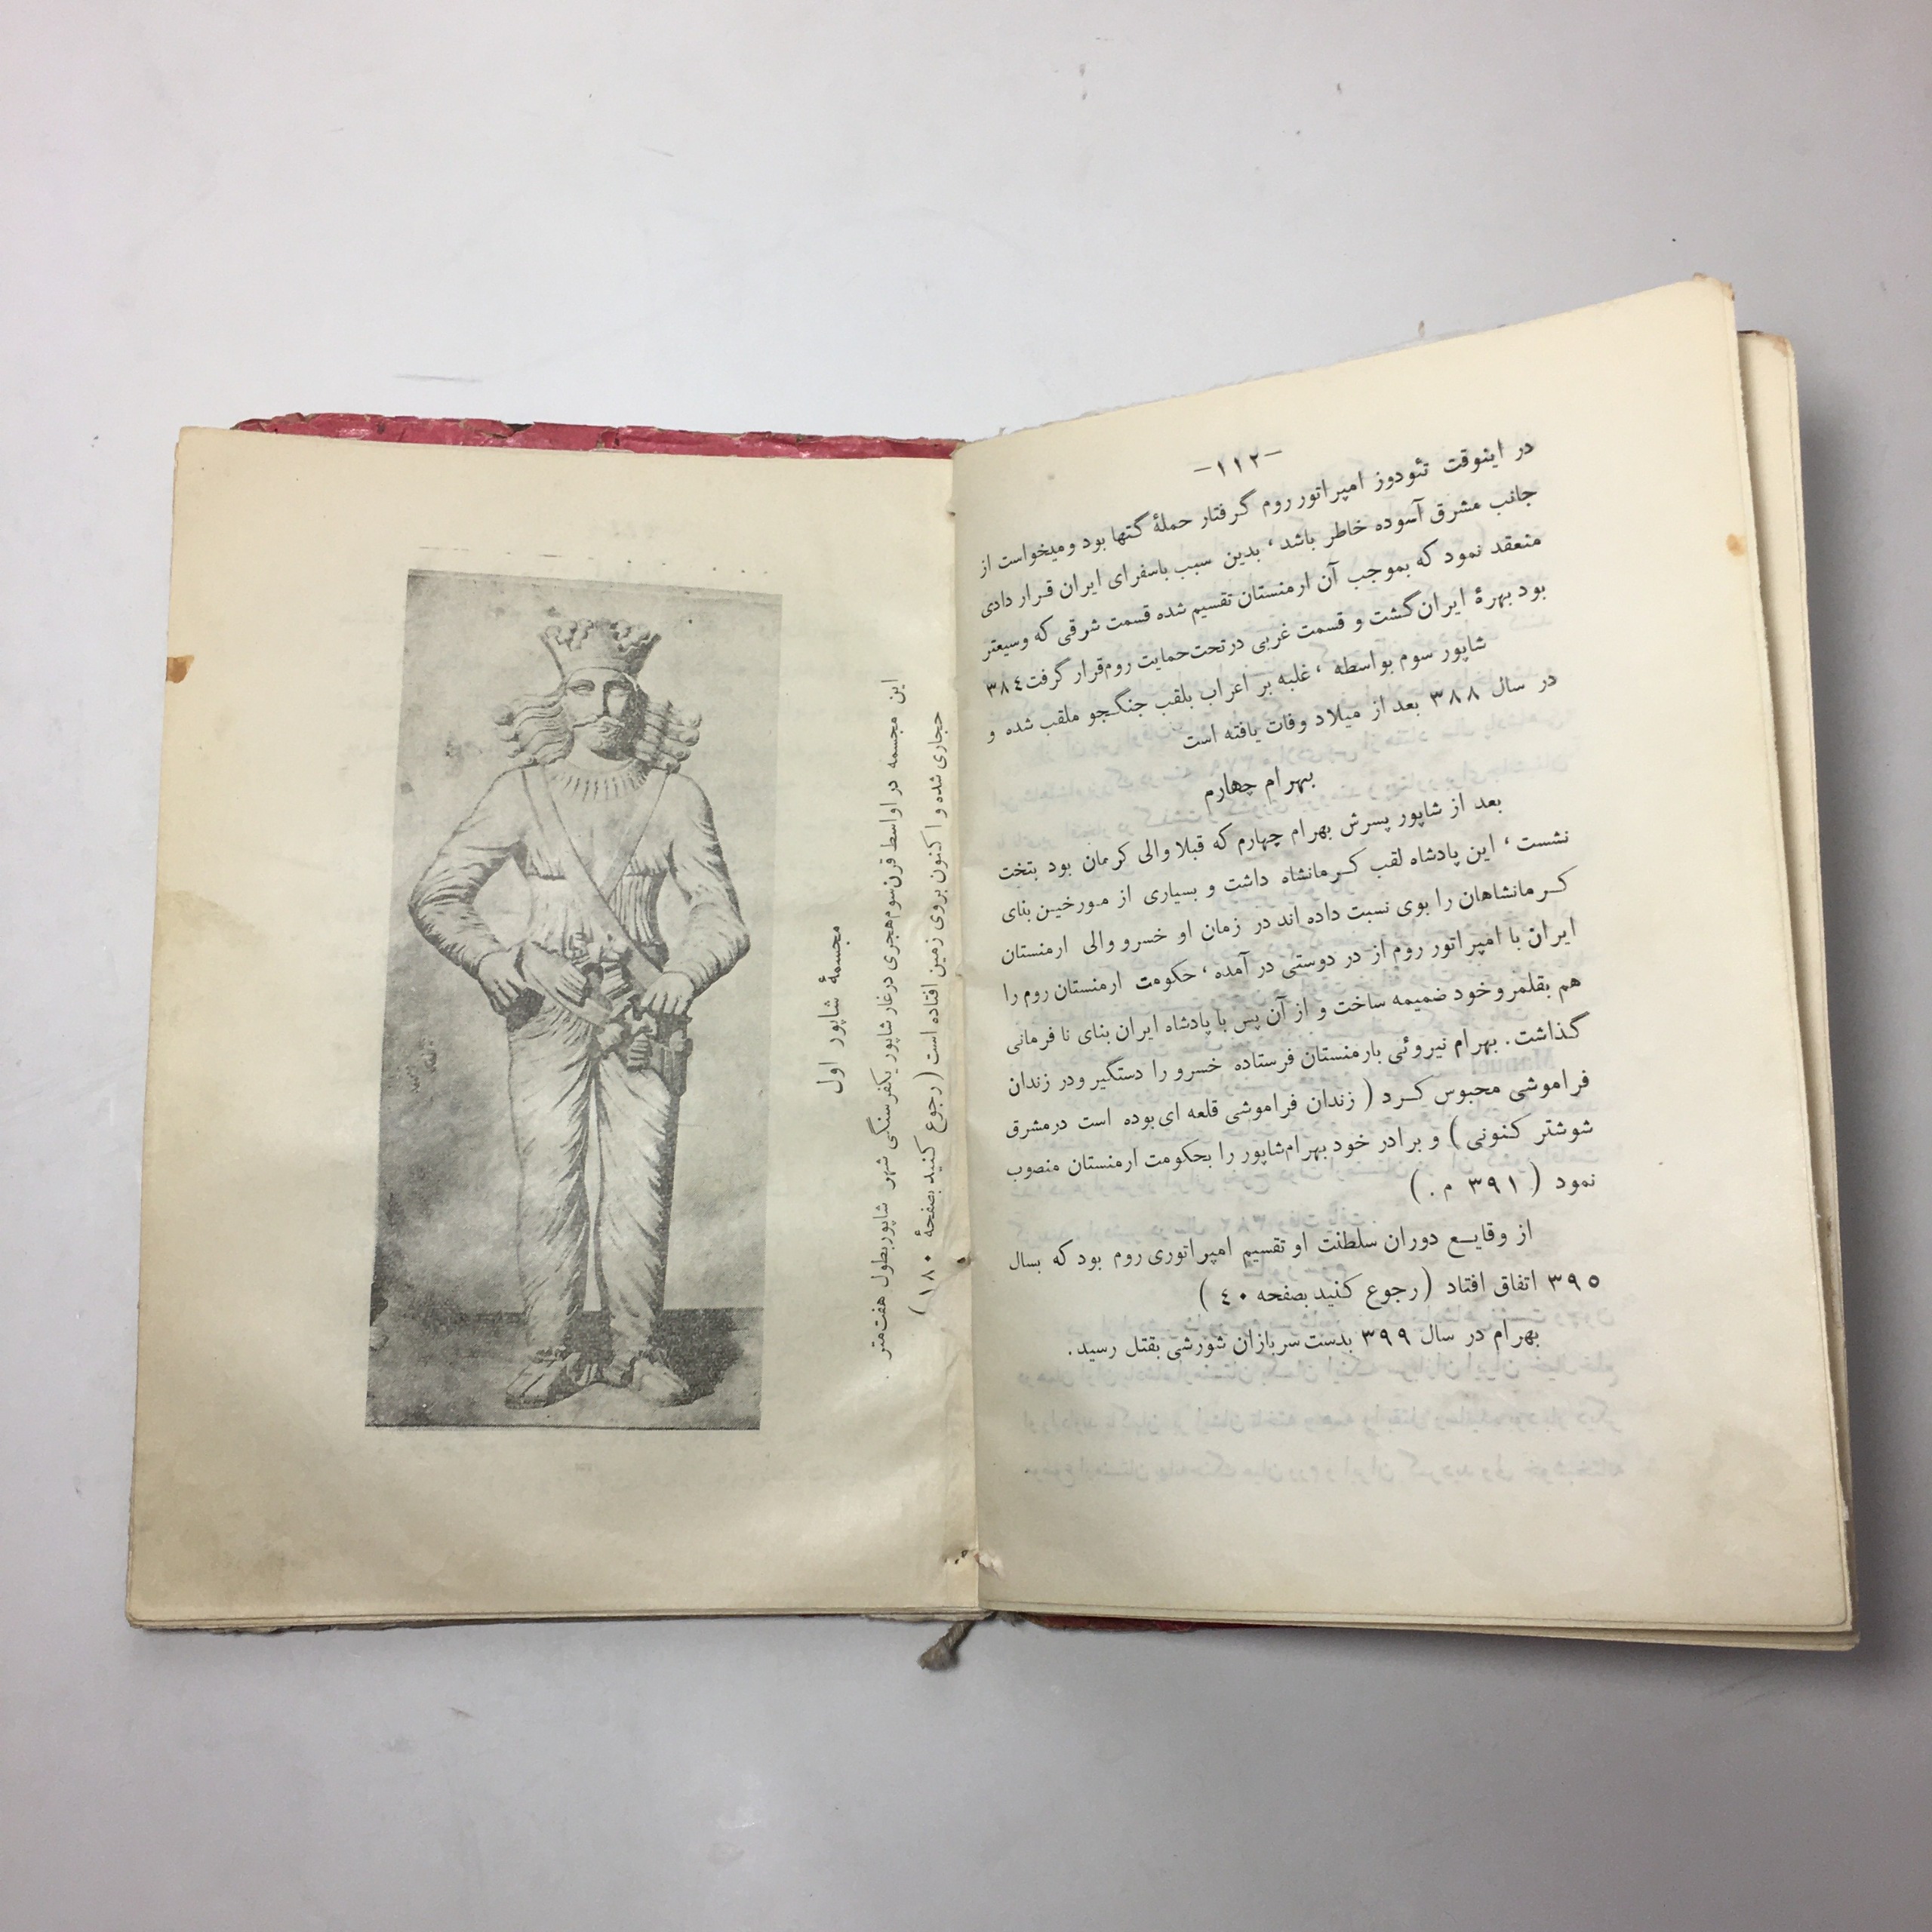 -۱۱۲-
در اینوقت تئودوز امپراتور روم گرفتار حملهٔ گتها بود و میخواست از
جانب مشرق آسوده خاطر باشد، بدین سبب باسفرای ایران قرار دادی
منعقد نمود که بموجب آن ارمنستان تقسیم شده قسمت شرقی که وسیعتر
بود بهرهٔ ایران گشت و قسمت غربی در تحت حمایت روم قرار گرفت ۳۸٤
شاپور سوم بواسطه، غلبه بر اعراب بلقب جنگجو ملقب شده و
در سال ۳۸۸ بعد از میلاد وفات یافته است
بهرام چهارم
بعد از شاپور پسرش بهرام چهارم که قبلا والی کرمان بود بتخت
نشست، این پادشاه لقب کرمانشاه داشت و بسیاری از مورخین بنای
کرمانشاهان را بوی نسبت داده اند در زمان او خسرو والی ارمنستان
ایران با امپراتور روم از در دوستی در آمده، حکومت ارمنستان روم را
هم بقلمرو خود ضمیمه ساخت و از آن پس با پادشاه ایران بنای نافرمانی
گذاشت. بهرام نیروئی بارمنستان فرستاده خسرو را دستگیر ودر زندان
فراموشی محبوس کرد (زندان فراموشی قلعه ای بوده است درمشرق
شوشتر کنونی) و برادر خود بهرام شاپور را بحکومت ارمنستان منصوب
نمود (۳۹۱ م.)
از وقایع دوران سلطنت او تقسیم امپراتوری روم بود که بسال
۳۹٥ اتفاق افتاد (رجوع کنید بصفحه ٤۰)
بهرام در سال ۳۹۹ بدست سربازان شورشی بقتل رسید.
مجسمهٔ شاپور اول
این مجسمه در اواسط قرن سوم هجری درغار شاپور یکفرسنگی شهر شاپور بطول هفت متر
حجاری شده و اکنون بروی زمین افتاده است (رجوع کنید بصفحهٔ ۱۸۰)